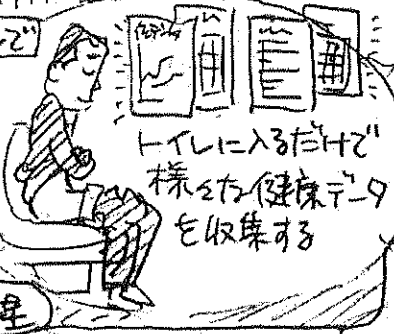 で
トイレに入るだけで
様々な健康データ
を収集する